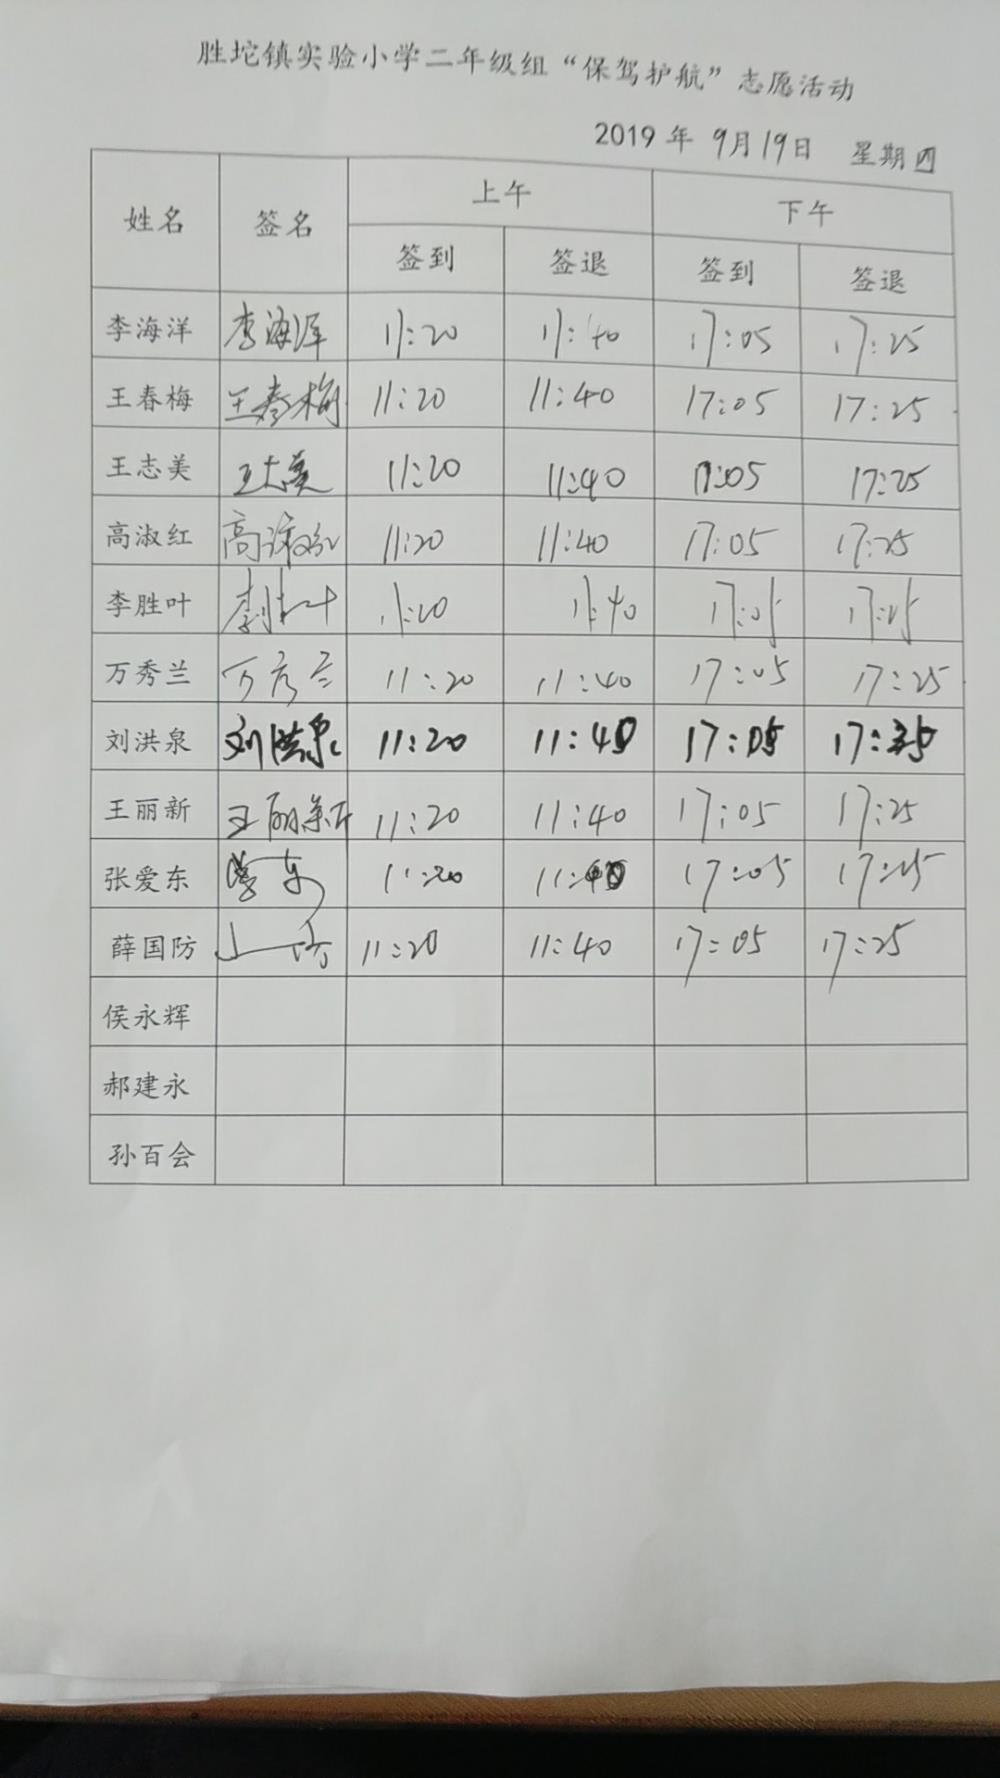 胜坨镇实验小学二年级组“保驾护航”志愿活动
2019 年 9月19日 星期四
姓名 签名 上午 下午
签到 签退 签到 签退
李海洋 李海洋 11:20 11:40 17:05 17:25
王春梅 王春梅 11:20 11:40 17:05 17:25
王志美 王志美 11:20 11:40 17:05 17:25
高淑红 高淑红 11:20 11:40 17:05 17:25
李胜叶 李胜叶 11:20 11:40 17:05 17:25
万秀兰 万秀兰 11:20 11:40 17:05 17:25
刘洪泉 刘洪泉 11:20 11:40 17:05 17:25
王丽新 王丽新 11:20 11:40 17:05 17:25
张爱东 11:20 11:40 17:05 17:25
薛国防 11:20 11:40 17:05 17:25
侯永辉
郝建永
孙百会